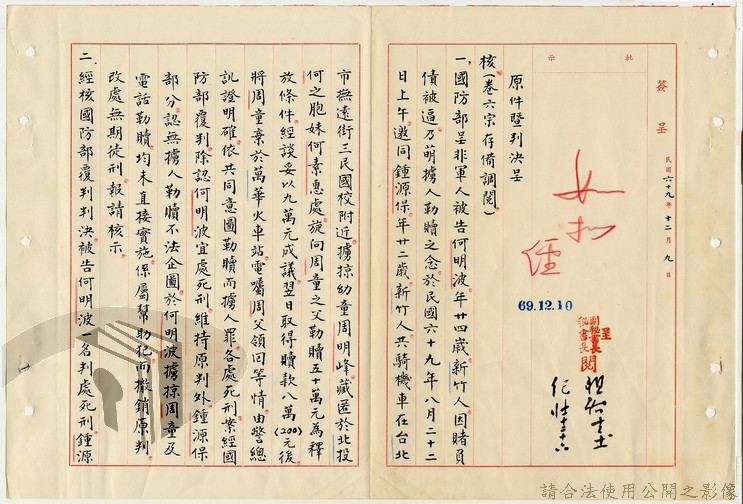 簽呈
民國六十九年十二月九日
批示
如擬
經
69.12.10
呈
副秘書長
秘書長
閱
原件暨判決呈
核(卷六宗存備調閱)
一、國防部呈非軍人被告何明波年廿四歲新竹人因賭負
債被逼乃萌擄人勒贖之念於民國六十九年八月二十二
日上午邀同鍾源保年廿二歲新竹人共騎機車在台北
市撫遠街三民國校附近擄掠幼童周明峰藏匿於北投
何之胞妹何素惠處旋向周童之父勒贖五十萬元為釋
放條件經談妥以九萬元成議翌日取得贖款八萬(200)元後
將周童棄於萬華火車站電囑周父領回等情由警總
訊證明確依共同意圖勒贖而擄人罪各處死刑案經國
防部覆判除認何明波宜處死刑維持原判外鍾源保
部分認無擄人勒贖不法企圖於何明波擄掠周童及
電話勒贖均未直接實施係屬幫助犯而撤銷原判
改處無期徒刑報請核示
二、經核國防部覆判判決被告何明波一名判處死刑鍾源
請合法使用公開之影像